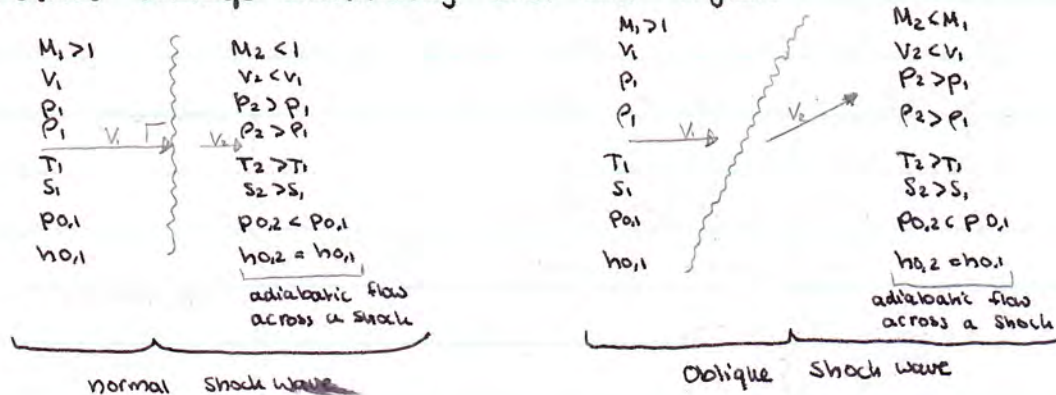 M₁ >1
V₁
p₁
ρ₁
V₁
T₁
S₁
p0,1
h0,1
M₂ <1
V₂ <V₁
p₂ > p₁
ρ₂ > ρ₁
V₂
T₂ >T₁
S₂ >S₁
p0,2 < p0,1
h0,2 = h0,1
adiabatic flow
across a shock
normal shock wave
M₁ >1
V₁
p₁
ρ₁
V₁
T₁
S₁
p0,1
h0,1
M₂ <M₁
V₂ <V₁
p₂ >p₁
ρ₂ >ρ₁
V₂
T₂ >T₁
S₂ >S₁
p0,2 < p0,1
h0,2 = h0,1
adiabatic flow
across a shock
Oblique shock wave